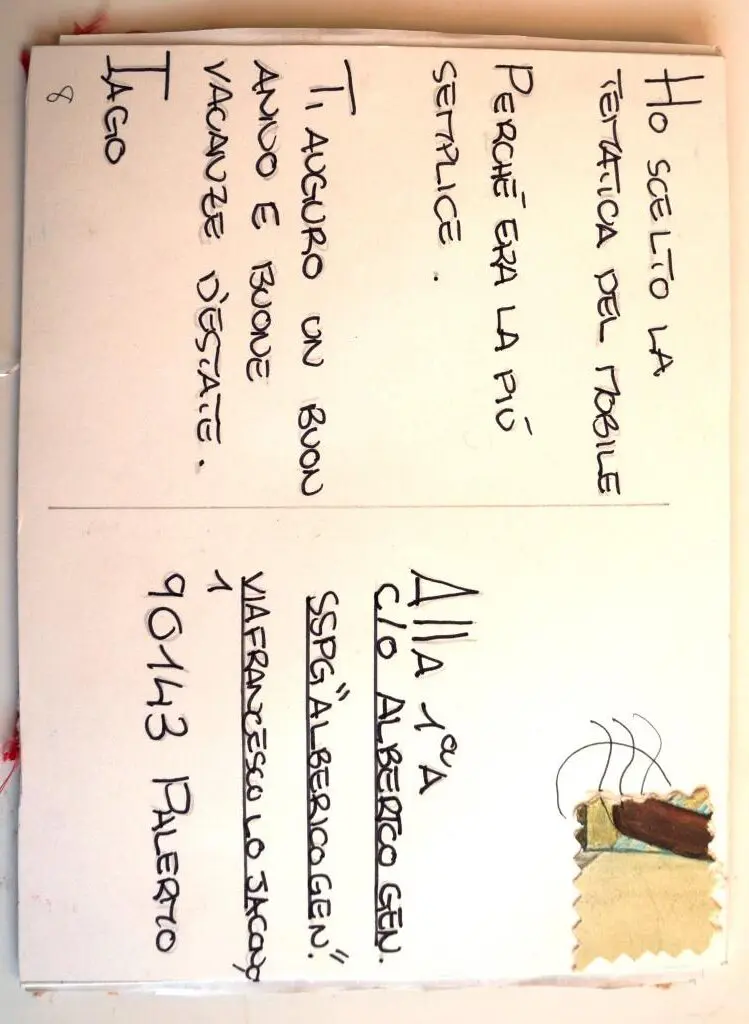 HO SCELTO LA
TEMATICA DEL MOBILE
PERCHÉ ERA LA PIÙ
SEMPLICE.
TI AUGURO UN BUON
ANNO E BUONE
VACANZE D'ESTATE.
IAGO
8
AllA 1ªA
C/O ALBERTCO GEN.
SSPG "ALBERICO GEN."
VIA FRANCESCO LO JACONO,
1
90143 PALERMO